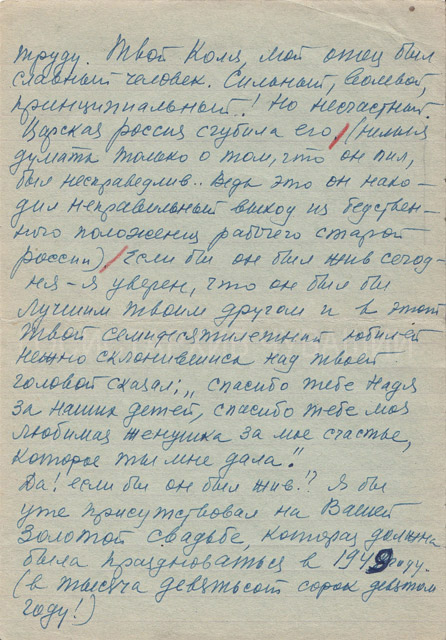 труду. Твой Коля, мой отец был
славный человек. Сильный, волевой,
принципиальный! Но несчастный.
Царская россия сгубила его, (нельзя
думать только о том, что он пил,
был несправедлив.. Ведь это он нахо-
дил неправильный выход из бедствен-
ного положения рабочего старой
россии) Если бы он был жив сегод-
ня - я уверен, что он был бы
лучшим твоим другом и в этот
твой семидесятилетний юбилей
нежно склонившись над твоей
головой сказал: „спасибо тебе Надя
за наших детей, спасибо тебе моя
любимая женушка за мое счастье,
которое ты мне дала!"
Да! если бы он был жив!? Я бы
уже присутствовал на Вашей
Золотой свадьбе, которая должна
была праздноваться в 1949 году.
(в тысяча девятьсот сорок девятом
году!)